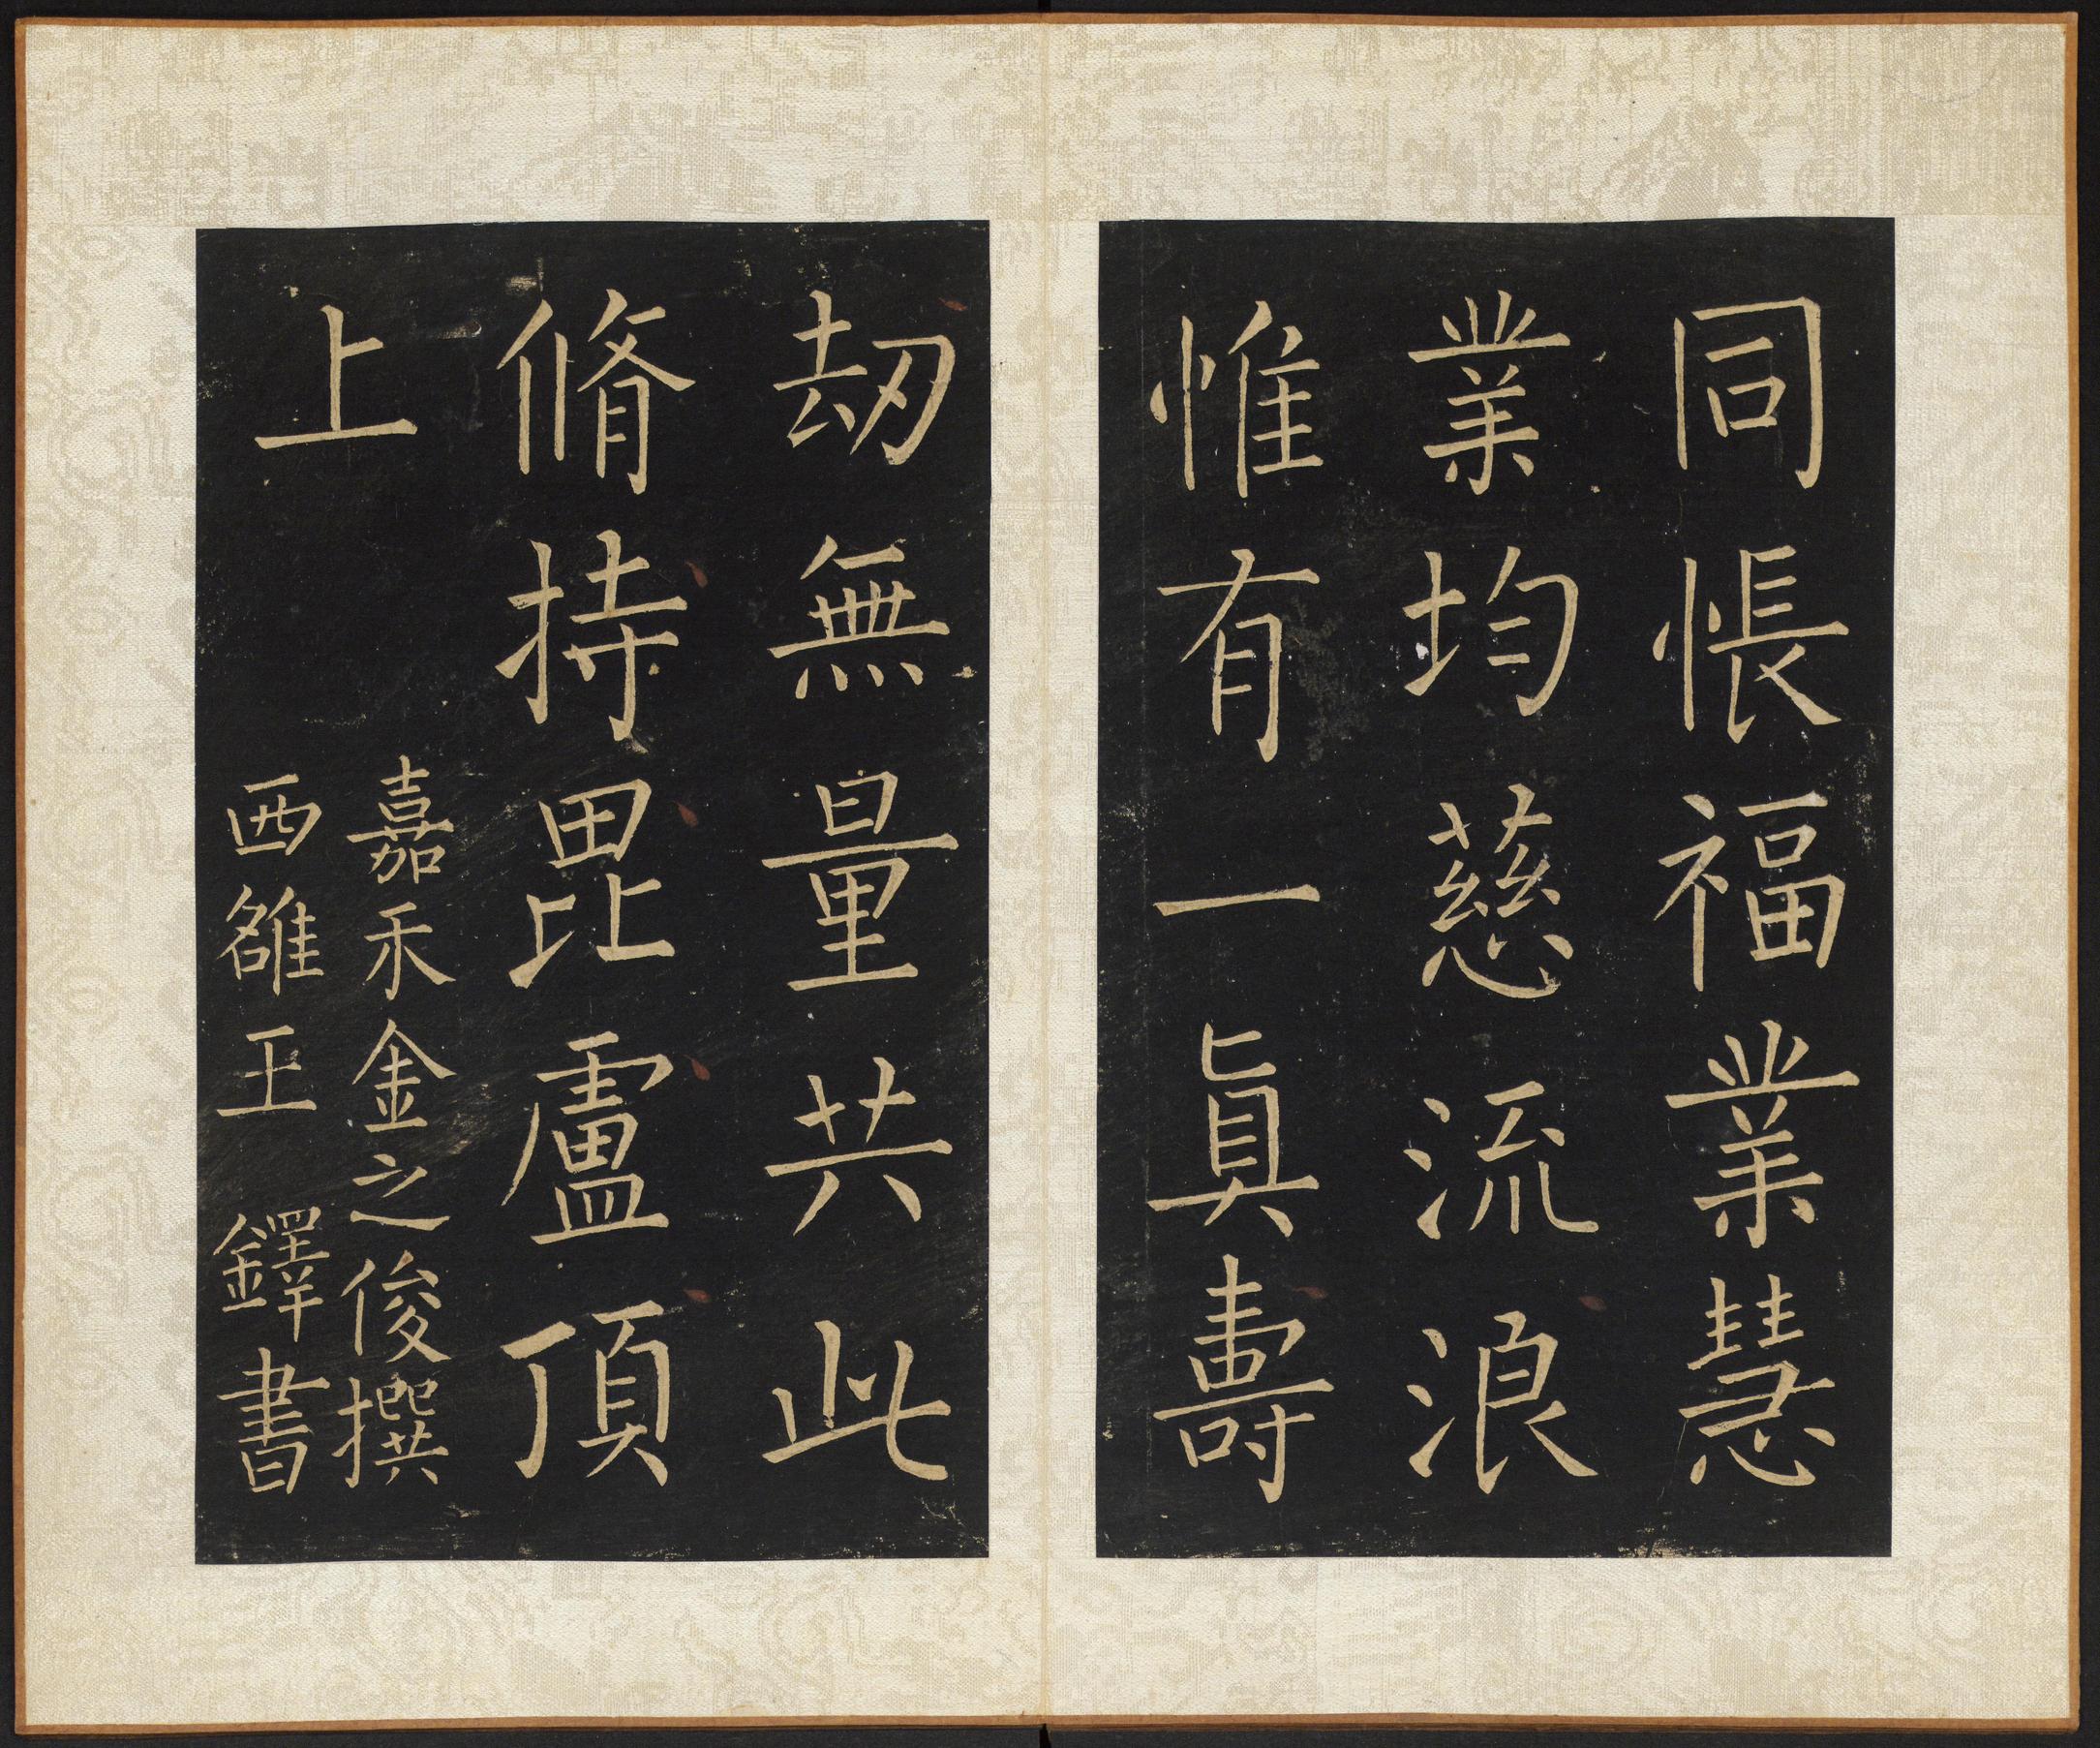 同悵福業慧
業均慈流浪
惟有一眞壽
刼無量共此
脩持毘盧頂
上
嘉禾金之俊撰
西雒王鐸書